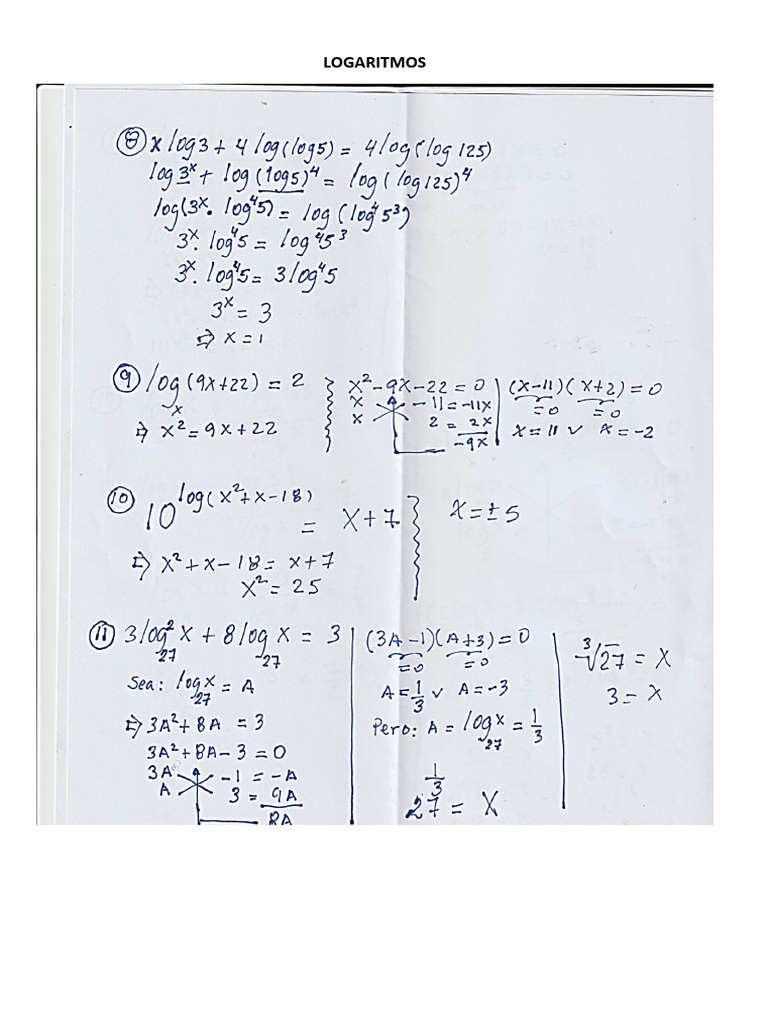 LOGARITMOS
⑧ x log3 + 4 log(log5) = 4 log(log 125)
log 3^x + log (log5)^4 = log (log125)^4
log(3^x . log^4 5) = log (log^4 5^3)
3^x . log^4 5 = log^4 5^3
3^x . log^4 5 = 3 log^4 5
3^x = 3
⇒ x = 1
⑨ log_x (9x+22) = 2
⇒ x² = 9x + 22
x² - 9x - 22 = 0
x -11 = -11x
x 2 = 2x
-9x
(x-11)(x+2) = 0
=0 =0
x = 11 ∨ x = -2
⑩ 10^log(x²+x-18) = x + 7
⇒ x² + x - 18 = x + 7
x² = 25
x = ± 5
⑪ 3 log²_27 x + 8 log_27 x = 3
Sea: log_27 x = A
⇒ 3A² + 8A = 3
3A² + 8A - 3 = 0
3A -1 = -A
A 3 = 9A
8A
(3A - 1)(A + 3) = 0
=0 =0
A = 1/3 ∨ A = -3
Pero: A = log_27 x = 1/3
27^1/3 = x
³√27 = x
3 = x